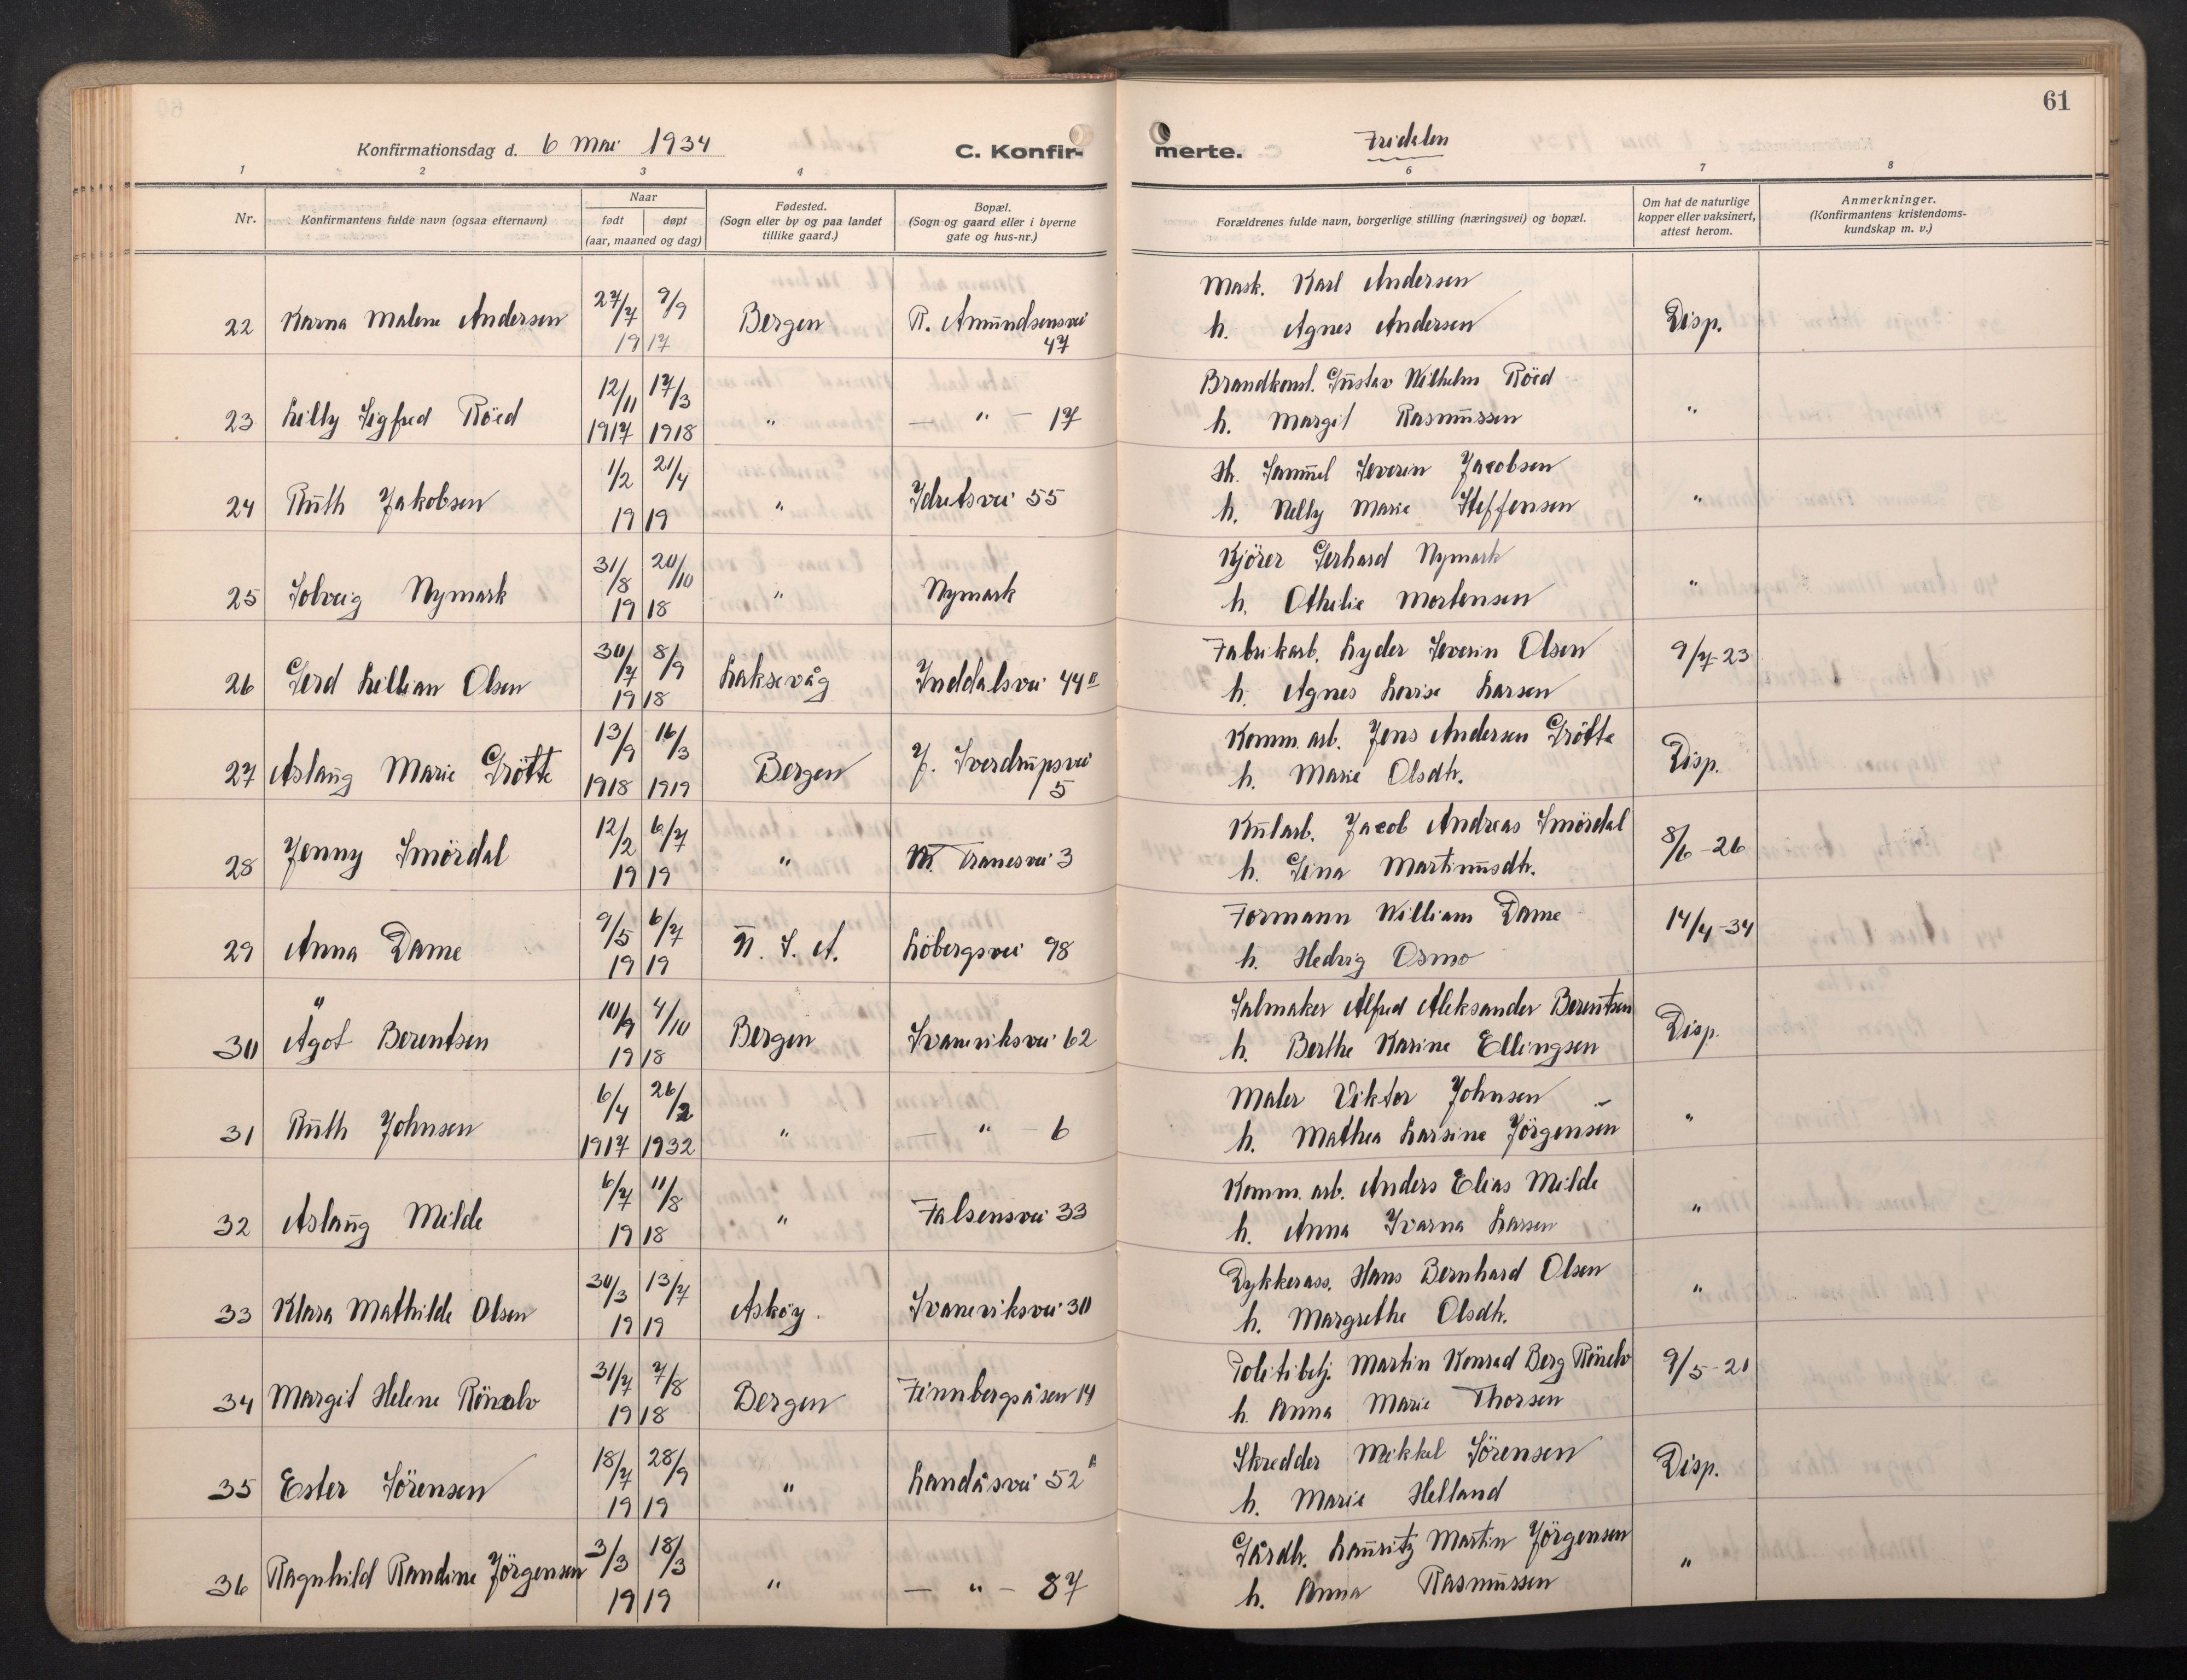 61
Konfirmationsdag d. 6 Mai 1934
C. Konfirmerte.
Fridalen
1 2 3 4 6 7 8
Nr.
Konfirmantens fulde navn (ogsaa efternavn)
Naar
født døpt
(aar, maaned og dag)
Fødested.
(Sogn eller by og paa landet
tillike gaard.)
Bopæl.
(Sogn og gaard eller i byerne
gate og hus-nr.)
Forældrenes fulde navn, borgerlige stilling (næringsvei) og bopæl.
Om hat de naturlige
kopper eller vaksinert,
attest herom.
Anmerkninger.
(Konfirmantens kristendoms-
kundskap m. v.)
22 Karna Malene Andersen 27/7 9/9 1917 Bergen R. Amundsensvei 47
Mask. Karl Andersen
h. Agnes Andersen
Disp.
23 Lilly Sigfred Röed 12/11 1917 17/3 1918 " — " — 17
Brandkonst. Gustav Wilhelm Röed
h. Margit Rasmussen
"
24 Ruth Jakobsen 1/2 21/4 1919 " Idretsvei 55
St. Samuel Severin Jacobsen
h. Nelly Marie Steffensen
"
25 Solveig Nymark 31/8 20/10 1918 " Nymark
Kjörer Gerhard Nymark
h. Othelie Mortensen
"
26 Gerd Lillian Olsen 30/7 8/9 1918 Laksevåg Inddalsvei 44 II
Fabrikarb. Lyder Severin Olsen
h. Agnes Lovise Larsen
9/7-23
27 Aslaug Marie Grötte 13/9 1918 16/3 1919 Bergen J. Sverdrupsvei 5
Komm. arb. Jens Andersen Grötte
h. Marie Olsdtr.
Disp.
28 Jenny Smördal 12/2 6/7 1919 " Tranesvei 3
Kularb. Jacob Andreas Smördal
h. Gina Martinusdtr.
8/6-26
29 Anna Dame 9/5 6/7 1919 U. S. A. Löbergsvei 98
Formann William Dame
h. Hedvig Osmo
14/4-34
30 Ågot Berentsen 10/9 4/10 1918 Bergen Svaneviksvei 62
Salmaker Alfred Aleksander Berentsen
h. Berthe Karine Ellingsen
Disp.
31 Ruth Johnsen 6/4 1917 26/2 1932 " — " — 6
Maler Viktor Johnsen
h. Mathea Larsine Jörgensen
"
32 Aslaug Milde 6/7 11/8 1918 " Falsensvei 33
Komm. arb. Anders Elias Milde
h. Anna Ivarna Larsen
"
33 Klara Mathilde Olsen 30/3 13/7 1919 Asköy. Svaneviksvei 30
Dykkerass. Hans Bernhard Olsen
h. Margrethe Olsdtr.
"
34 Margit Helene Rönelv 31/7 7/8 1918 Bergen Finnbergåsen 14
Politibetj. Martin Konrad Berg Rönelv
h. Anna Marie Thorsen
9/5-21
35 Ester Sörensen 18/7 28/9 1919 " Landåsvei 52 A
Skredder Mikkel Sörensen
h. Marie Helland
Disp.
36 Ragnhild Randine Jörgensen 3/3 18/3 1919 " — " — 87
Gårdb. Lauritz Martin Jörgensen
h. Anna Rasmussen
"